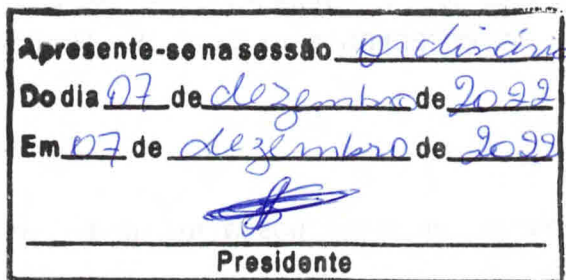 Apresente-se na sessão ordinária
Do dia 07 de dezembro de 2022
Em 07 de dezembro de 2022
Presidente